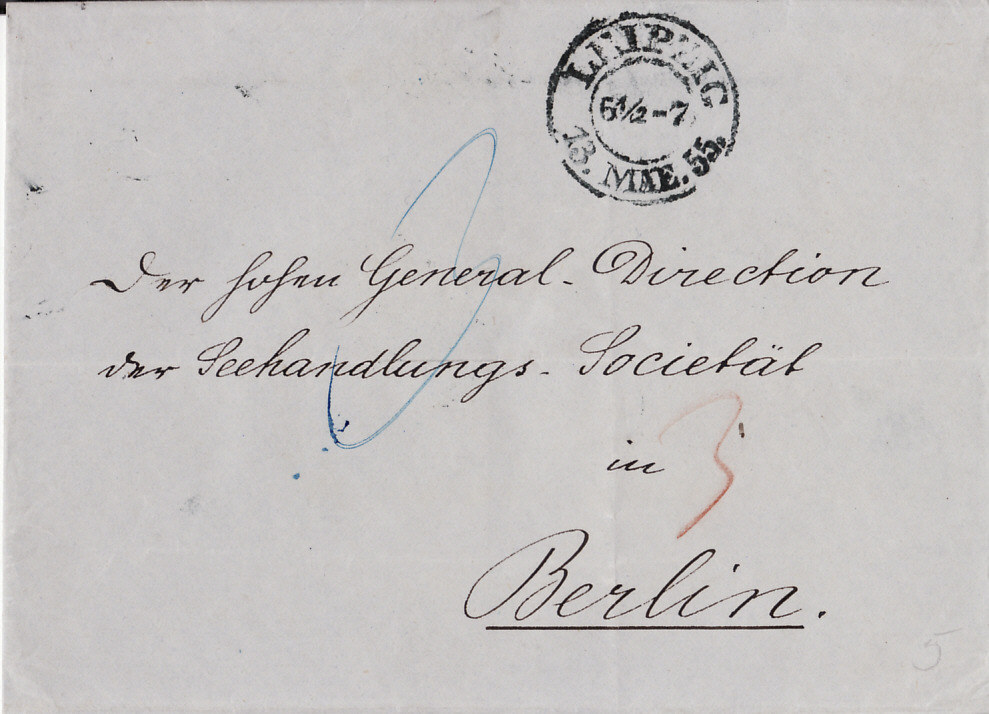 LEIPZIG
6½-7
13. MÄE. 55.
Der hohen General-Direction
der Seehandlungs-Societät
in
3
Berlin.
5